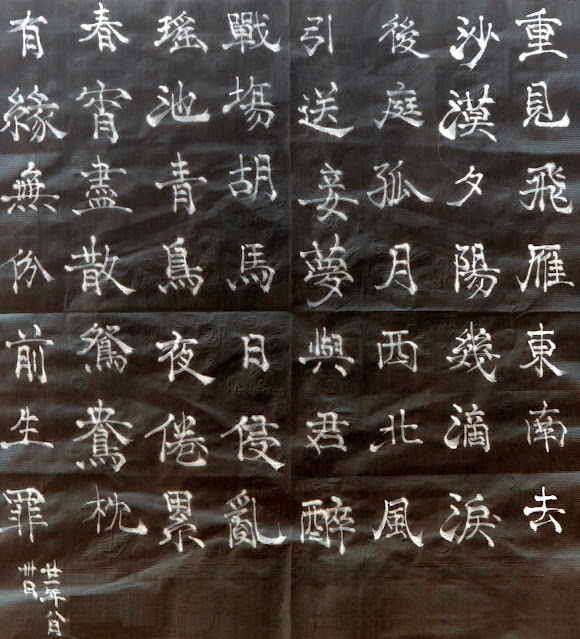 重見飛雁東南去
沙漠夕陽幾滴淚
後庭孤月西北風
引送妾夢與君醉
戰塲胡馬日侵亂
瑤池青鳥夜倦累
春宵盡散鴛鴦枕
有緣無份前生罪
廿一年八月
卅日